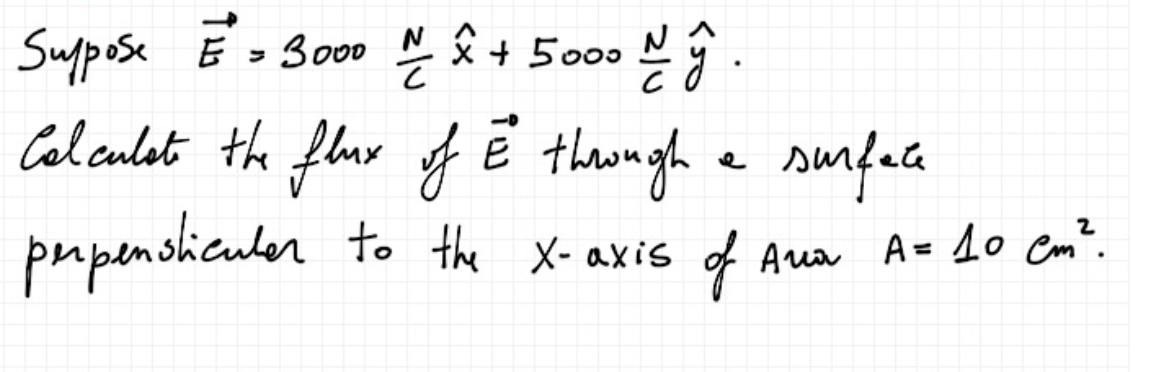 Suppose E⃗ = 3000 N/C x̂ + 5000 N/C ŷ.
Calculate the flux of E⃗ through a surface
perpendicular to the x-axis of Area A = 10 cm².